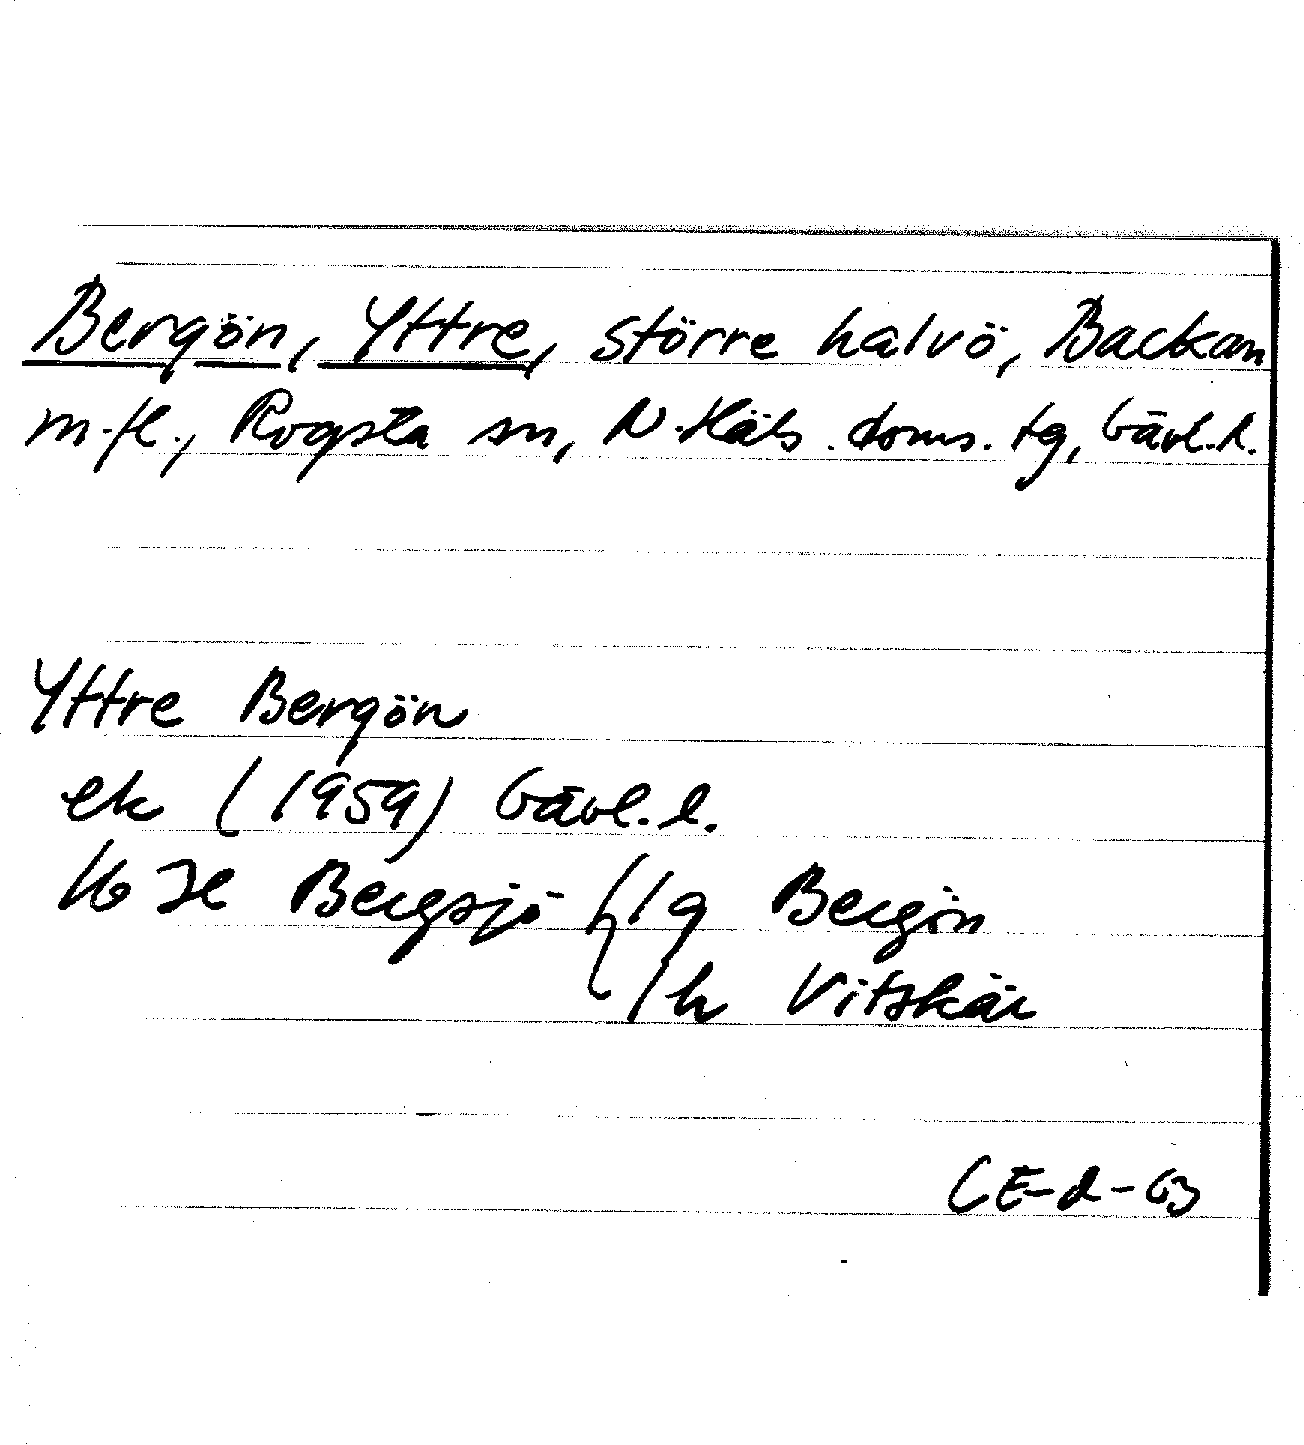 Bergön, Yttre, större halvö, Backan
m.fl., Rogsta sn, N.Häls. doms. tg, Gävl.l.
Yttre Bergön
ek (1959) Gävl.l.
16 H Bergsjö { /g Bergön
/h Vitskär
CE-d-63